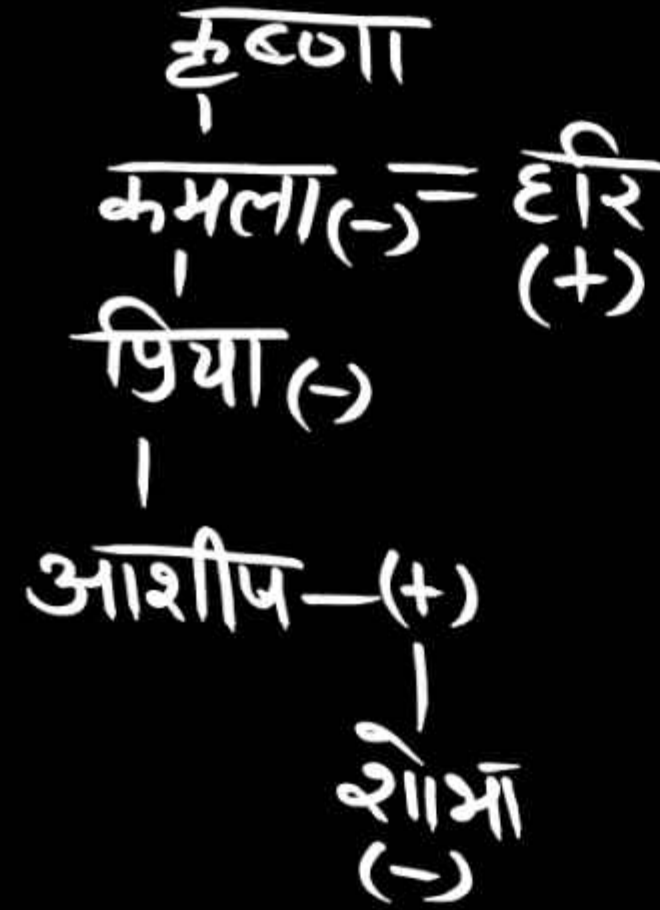 कृष्णा
कमला (-) = हरि (+)
प्रिया (-)
आशीष - (+)
शोभा (-)